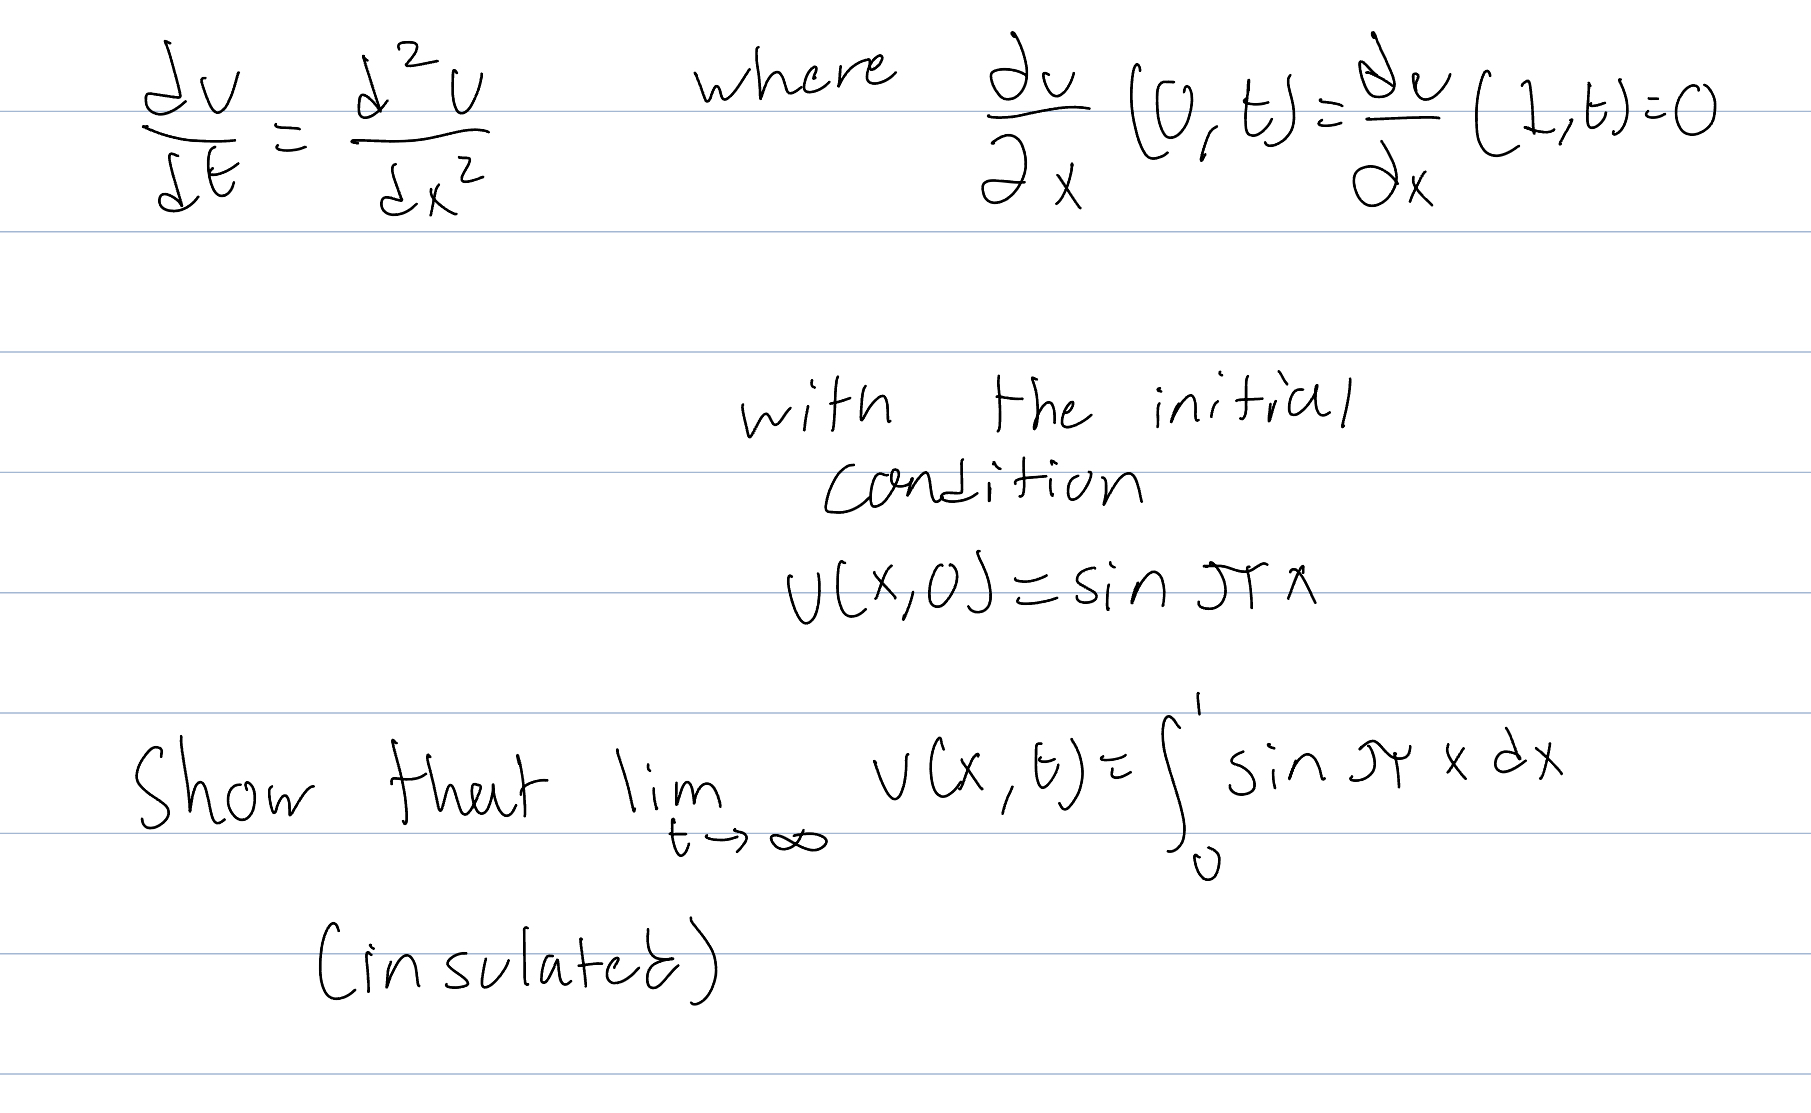 du/dt = d²u/dx² where ∂u/∂x (0,t) = ∂u/∂x (1,t) = 0
with the initial
condition
u(x,0) = sin πx
Show that lim t→∞ u(x,t) = ∫₀¹ sin πx dx
(insulated)